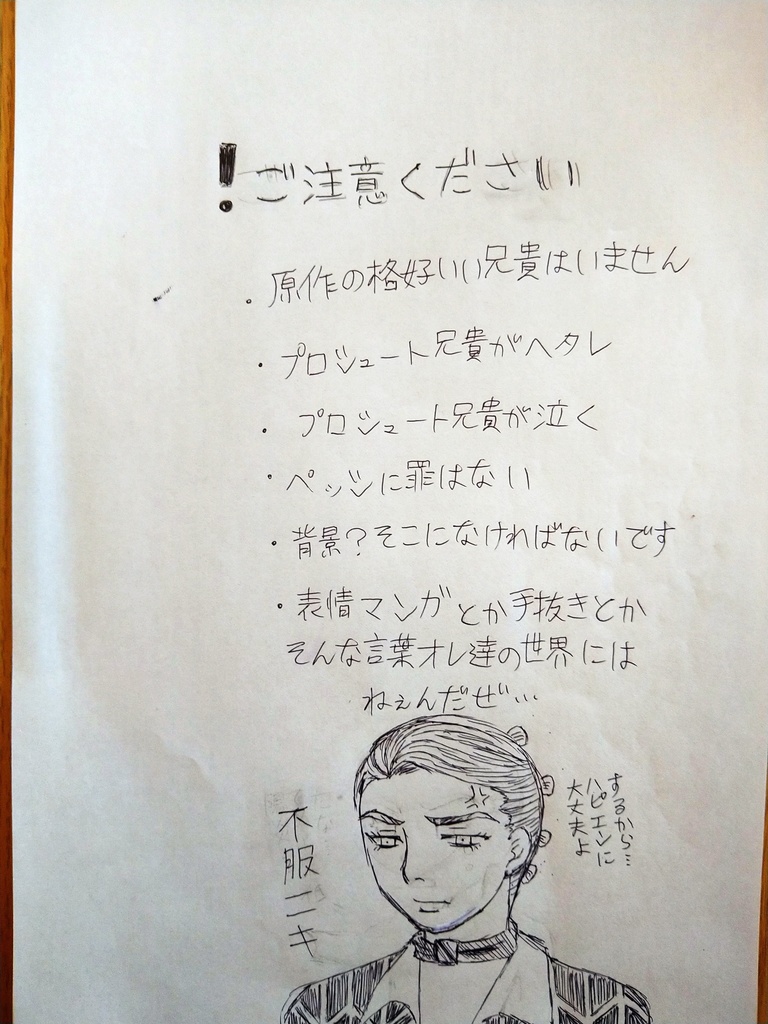 !ご注意ください
・原作の格好いい兄貴はいません
・プロシュート兄貴がヘタレ
・プロシュート兄貴が泣く
・ペッシに罪はない
・背景?そこになければないです
・表情マンガとか手抜きとか
そんな言葉オレ達の世界には
ねぇんだぜ…
不服ニキ
大丈夫よ
ハピエンに
するから…